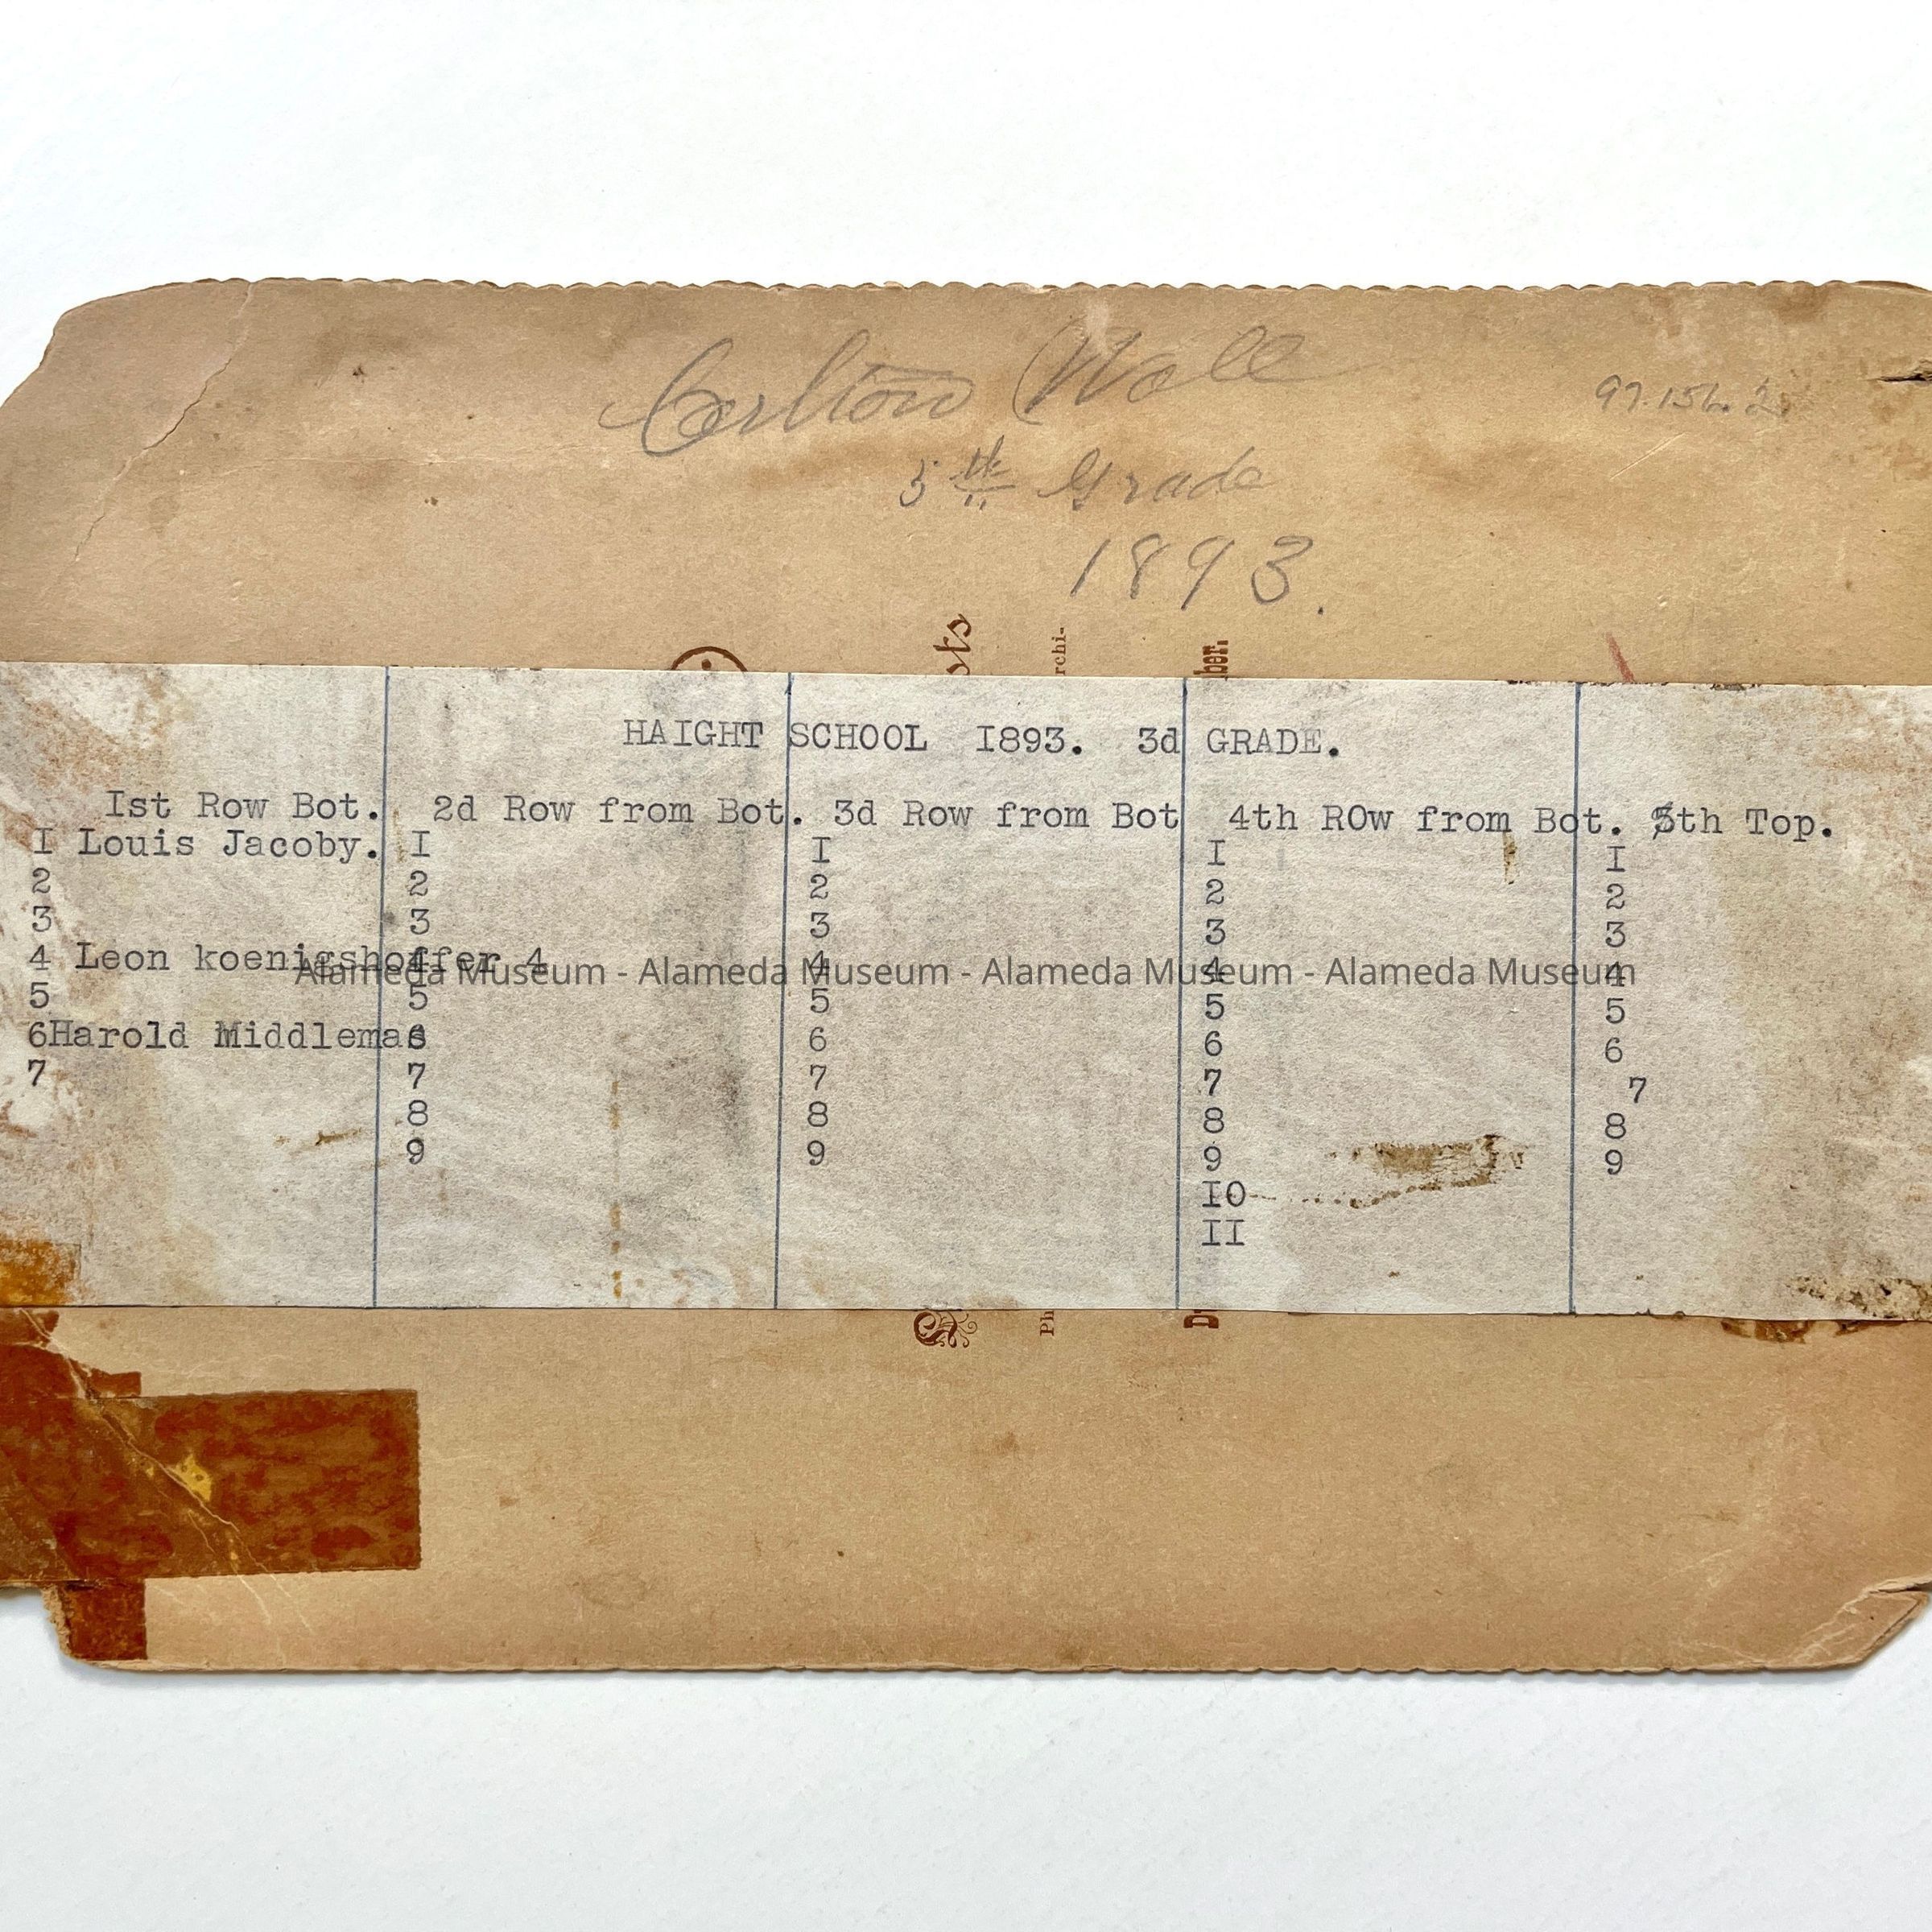 Carlton Wall
97.156.2
5th Grade
1893.
sts
rchi-
ber.
HAIGHT SCHOOL I893. 3d GRADE.
Ist Row Bot. 2d Row from Bot. 3d Row from Bot 4th ROw from Bot. 5th Top.
I Louis Jacoby. I I I I
2 2 2 2 2
3 3 3 3 3
4 Leon koenigshoffer 4 4 4 4
Alameda Museum - Alameda Museum - Alameda Museum - Alameda Museum
5 5 5 5 5
6Harold Middlemas 6 6 6 6
7 7 7 7 7
8 8 8 8
9 9 9 9
I0
II
Ph
D